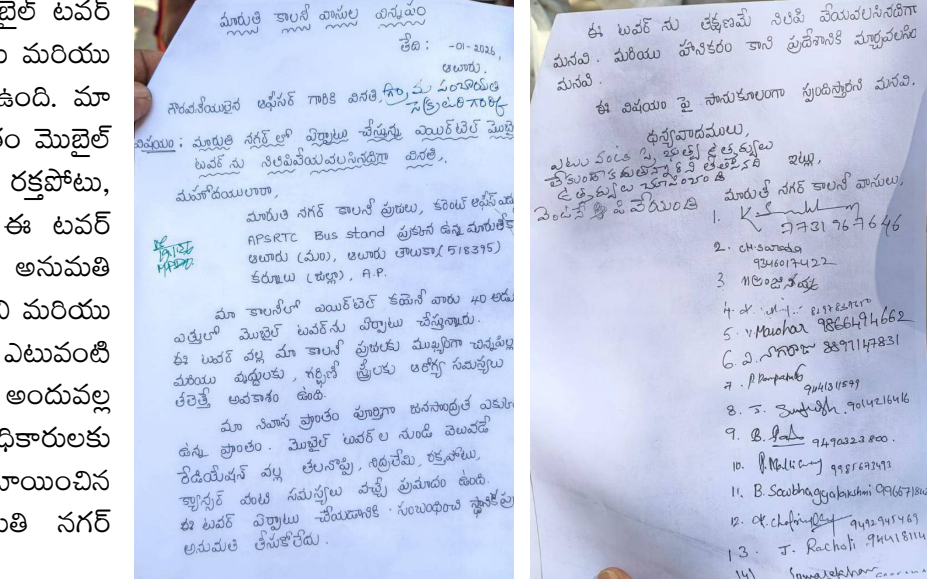 బైల్ టవర్
మరియు
ఉంది. మా
తం మొబైల్
రక్తపోటు,
ఈ టవర్
అనుమతి
ని మరియు
ఎటువంటి
అందువల్ల
ధికారులకు
మాయించిన
మతి నగర్
మారుతి కాలనీ వాసుల విన్నపం
తేది : -01-2026,
ఆలూరు.
గౌరవనీయులైన ఆఫీసర్ గారికి వినతి, గ్రామ పంచాయతి
విషయం : మారుతి నగర్ లో ఏర్పాటు చేస్తున్న ఎయిర్‌టెల్ మొబై
టవర్ ను నిలిపివేయవలసినదిగా వినతి,
మహోదయులారా,
మారుతి నగర్ కాలనీ ప్రజలు, కరెంట్ ఆఫీస్
APSRTC Bus stand ప్రక్కన ఉన్న మారుతి
ఆలూరు (మం), ఆలూరు తాలూకా (518395)
కర్నూలు (జిల్లా), A.P.
మా కాలనీలో ఎయిర్‌టెల్ కంపెనీ వారు 40 అడు
ఎత్తులో మొబైల్ టవర్‌ను ఏర్పాటు చేస్తున్నారు.
ఈ టవర్ వల్ల మా కాలనీ ప్రజలకు ముఖ్యంగా చిన్నపిల్ల
మరియు వృద్ధులకు, గర్భిణీ స్త్రీలకు ఆరోగ్య సమస్యలు
తలెత్తే అవకాశం ఉంది.
మా నివాస ప్రాంతం పూర్తిగా జనసాంద్రత ఎక్కువ
ఉన్న ప్రాంతం. మొబైల్ టవర్ ల నుండి వెలువడే
రేడియేషన్ వల్ల తలనొప్పి, నిద్రలేమి, రక్తపోటు,
క్యాన్సర్ వంటి సమస్యలు వచ్చే ప్రమాదం ఉంది.
ఈ టవర్ ఏర్పాటు చేయడానికి సంబంధించి స్థానిక ప్ర
అనుమతి తీసుకోలేదు.
ఈ టవర్ ను తక్షణమే నిలిపి వేయవలసినదిగా
మనవి. మరియు హానికరం కాని ప్రదేశానికి మార్చవలసిం
మనవి.
ఈ విషయం పై సానుకూలంగా స్పందిస్తారని మనవి.
ధన్యవాదములు,
ఇట్లు,
మారుతీ నగర్ కాలనీ వాసులు,
1.
7731967646
2. CH.Sarada
9346017422
3
4.
5. V. Manohar 9866494662
6. నాగరాజు 8897147831
7.
9441311579
8. J. 9014216416
9. B. 9490323800.
10. 9985693493
11. B. Sowbhagyalakshmi
12. 9492945469
13. J. Rachoti
14)